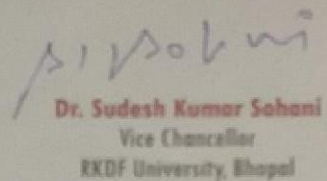 Dr. Sudesh Kumar Sohani
Vice Chancellor
RKDF University, Bhopal